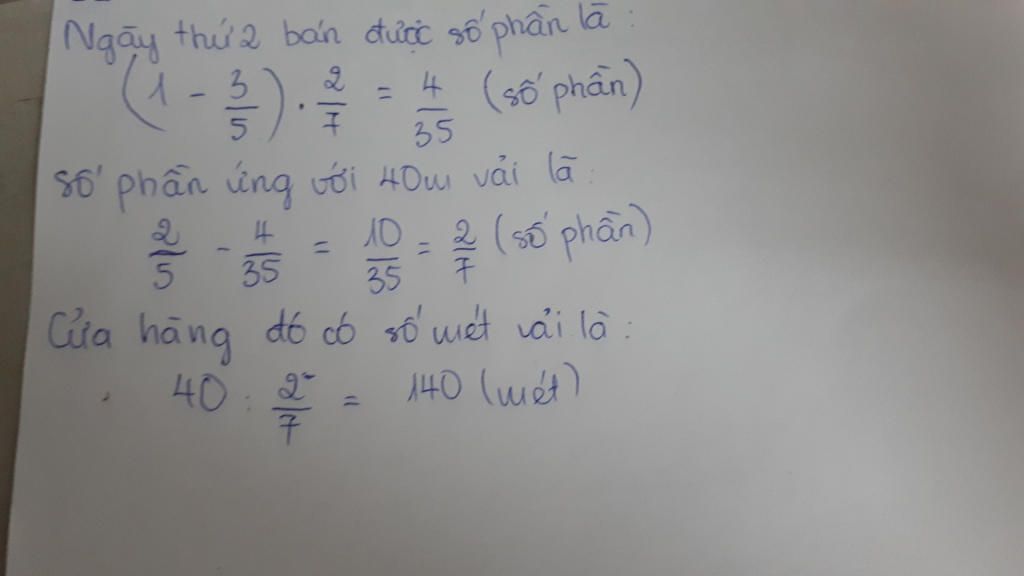 Ngày thứ 2 bán được số phần là :
(1 - 3/5) . 2/7 = 4/35 (số phần)
số phần ứng với 40m vải là :
2/5 - 4/35 = 10/35 = 2/7 (số phần)
Cửa hàng đó có số mét vải là :
40 : 2/7 = 140 (mét)